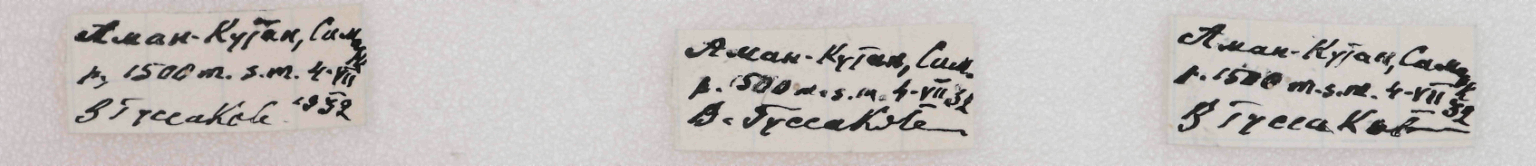 Аман-Кутан, Самк.
р, 1500 m. s. m. 4-VII
В Гуссаковс 1932
Аман-Кутан, Сам.
р. 1500 m. s. m. 4-VII 32
В. Гуссаковс
Аман-Кутан, Самк.
р. 1500 m. s. m. 4-VII 32
В Гуссаков